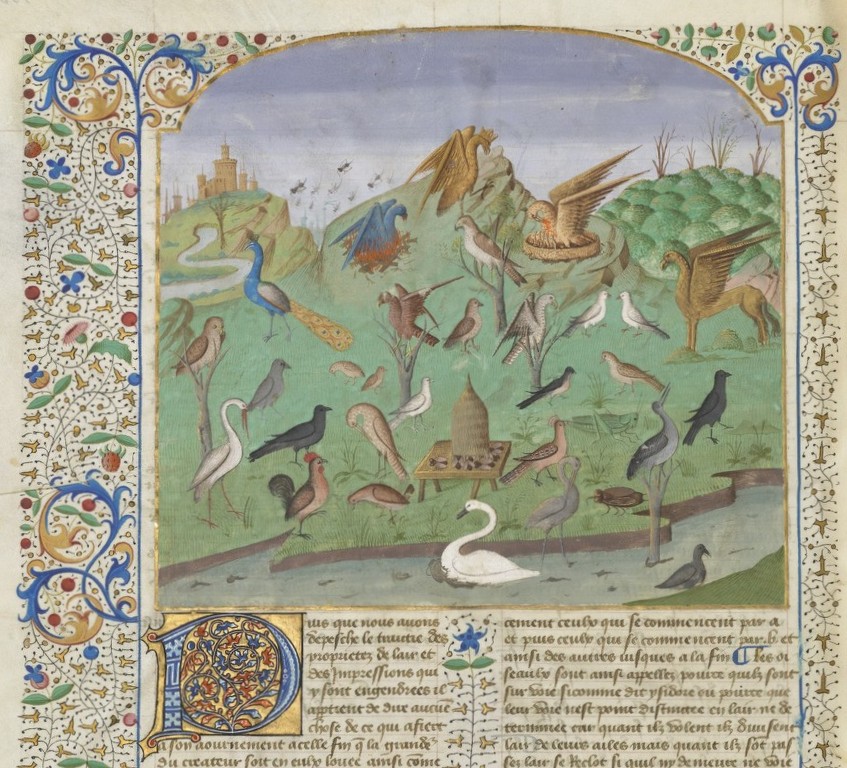 Puis que nous auons
depesche le traittie des
proprietez de lair et
des Impressions qui
y sont engendrees il
aptient de dire aucune
chose de ce qui affiert
a son aournement acelle fin q̄ la grandeʳ
du createur soit en eulx louee ainsi cōme
cement ceulx qui se commencent par a
et puis ceulx qui se commencent par .b. et
ainsi des autres iusques a la fin ¶ Les oi
seaulx sont ainsi appellez pource quilz sont
sur voie sicomme dit ysidore ou pource que
leur voie nest point distinctee en lair ne de
terminee car quant ilz volent ilz diuisent
lair de leurs ailes mais quant ilz sōt pas
sez lair se reclot si quil ny demeure ne voie